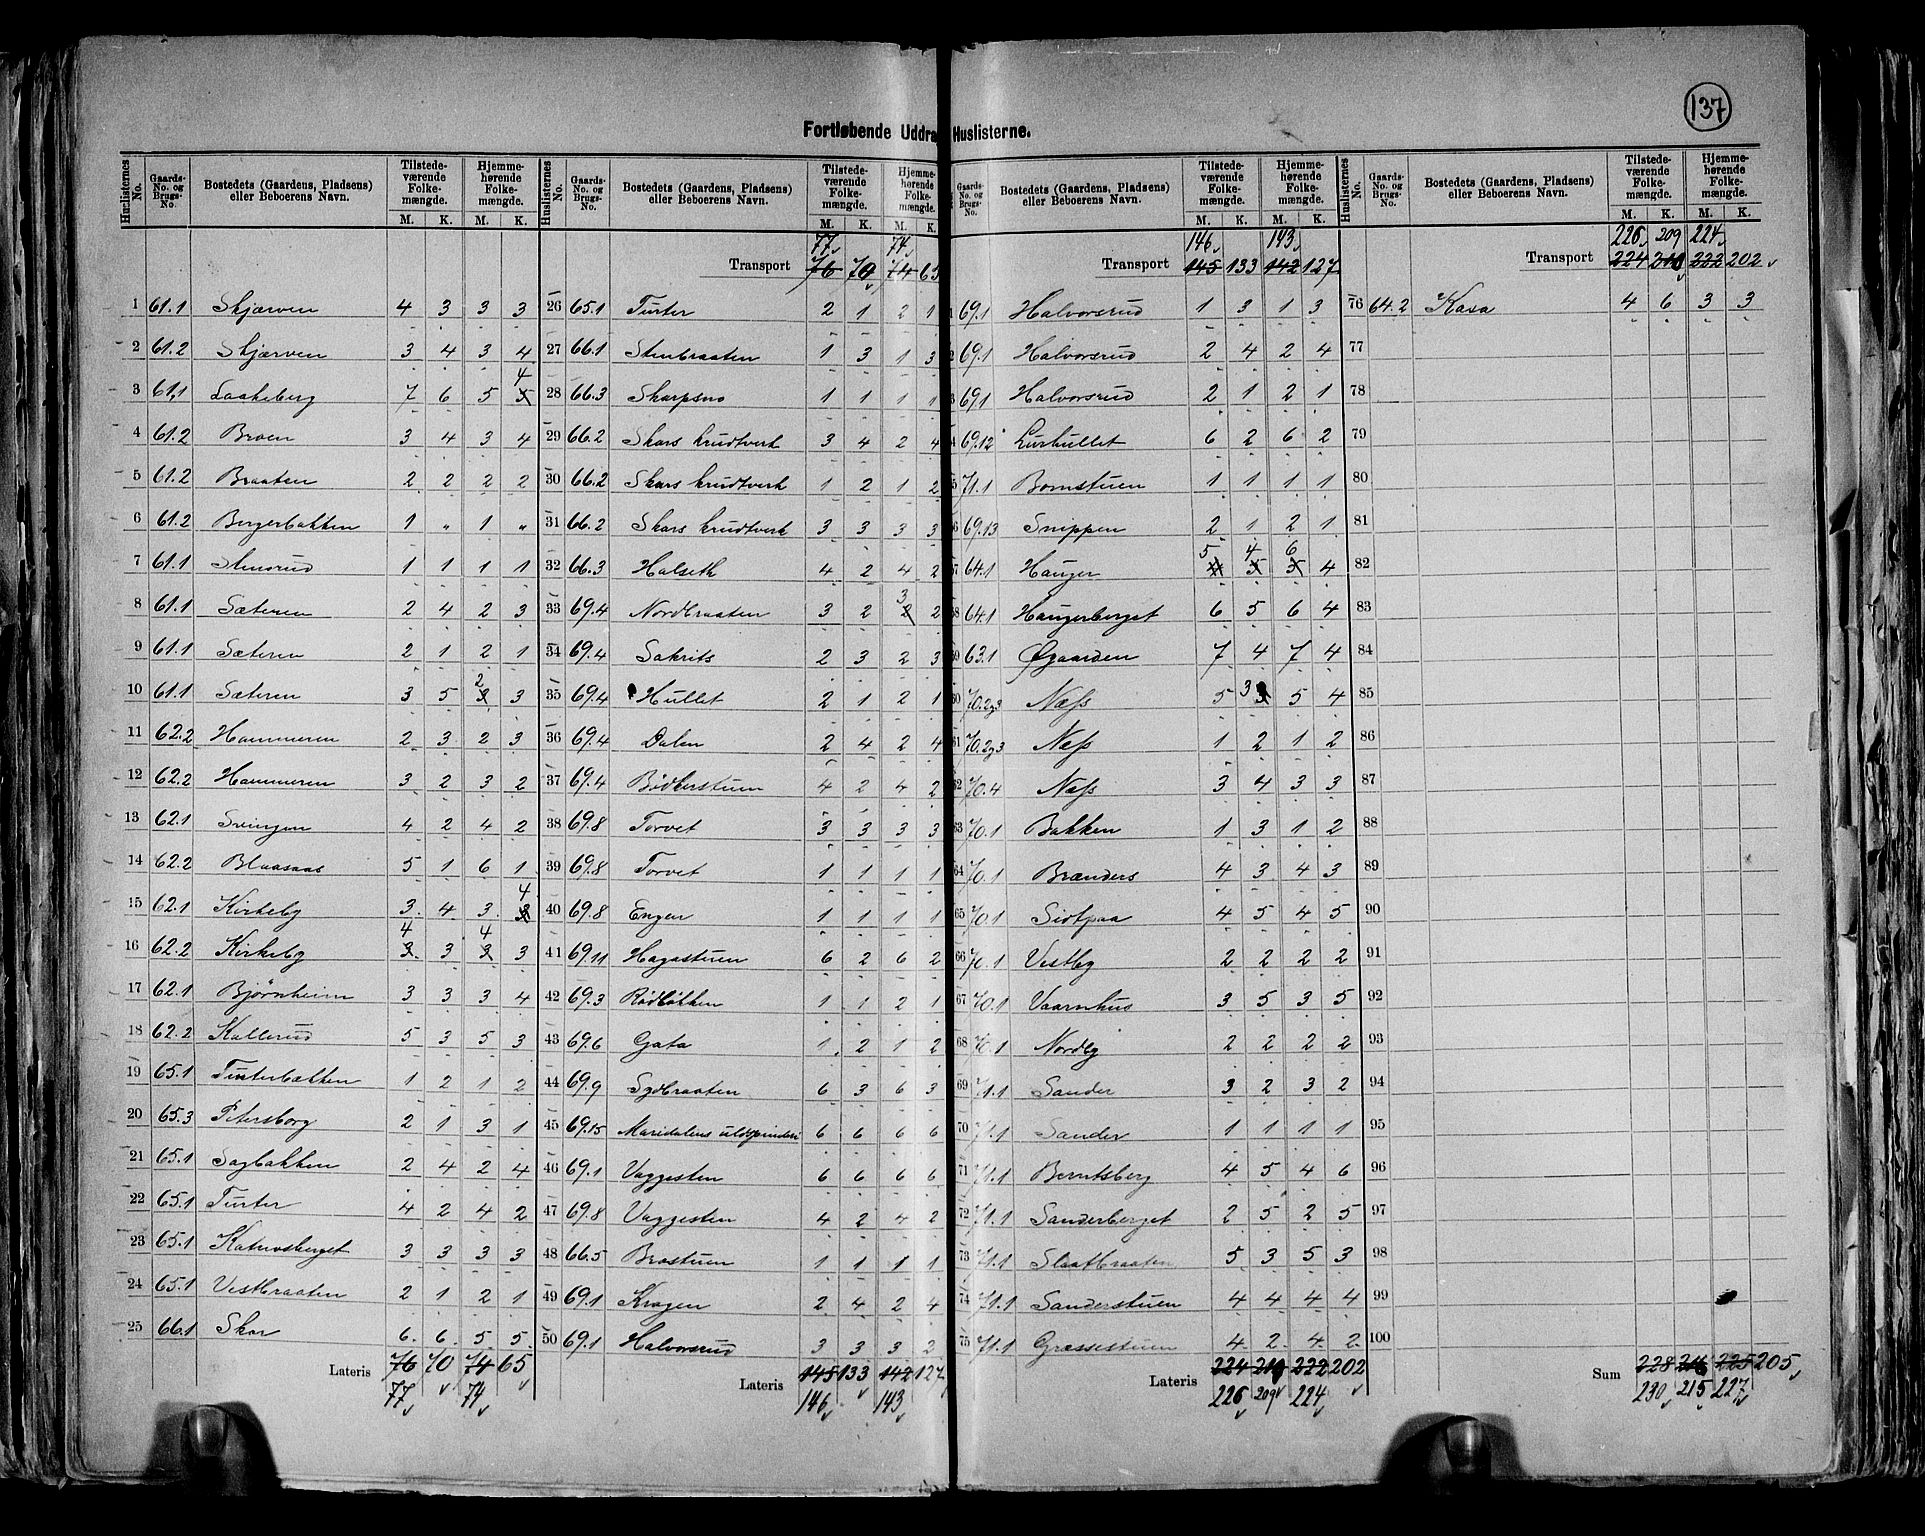 137
Fortløbende Uddra Huslisterne.
Huslisternes No. Gaards- No. og Brugs- No. Bostedets (Gaardens, Pladsens) eller Beboerens Navn. Tilstede- værende Folke- mængde. M. K. Hjemme- hørende Folke- mængde. M. K.
1 61.1 Skjærven 4 3 3 3
2 61.2 Skjærven 3 4 3 4
3 61.1 Laakeberg 7 6 5 5 4
4 61.2 Broen 3 4 3 4
5 61.2 Braaten 2 2 2 2
6 61.2 Birgerbakken 1 " 1 "
7 61.1 Stensrud 1 1 1 1
8 61.1 Sæteren 2 4 2 3
9 61.1 Sæteren 2 1 2 1
10 61.1 Sæteren 3 5 3 2 3
11 62.2 Hammeren 2 3 2 3
12 62.2 Hammeren 3 2 3 2
13 62.1 Svingen 4 2 4 2
14 62.2 Blaasaas 5 1 6 1
15 62.1 Kirkeby 3 4 3 3 4
16 62.2 Kirkeby 3 4 3 3 4 3
17 62.1 Bjørnheim 3 3 3 4
18 62.2 Kallerud 5 3 5 3
19 65.1 Turterbakken 1 2 1 2
20 65.3 Petersborg 2 1 3 1
21 65.1 Sagbakken 2 4 2 4
22 65.1 Turter 4 2 4 2
23 65.1 Katnosberget 3 3 3 3
24 65.1 Vestbraaten 2 1 2 1
25 66.1 Skar 6 6 5 5
Lateris 76 70 74 65
77 74
Huslisternes No. Gaards- No. og Brugs- No. Bostedets (Gaardens, Pladsens) eller Beboerens Navn. Tilstede- værende Folke- mængde. M. K. Hjemme- hørende Folke- mængde. M. K.
77 74
Transport 76 70 74 65
26 65.1 Turter 2 1 2 1
27 66.1 Stenbraaten 1 3 1 3
28 66.3 Skarpsno 1 1 1 1
29 66.2 Skars krudtverk 3 4 2 4
30 66.2 Skars krudtverk 1 2 1 2
31 66.2 Skars krudtverk 3 3 3 3
32 66.3 Halseth 4 2 4 2
33 69.4 Nordbraaten 3 2 2 3 2
34 69.4 Sakrits 2 3 2 3
35 69.4 Hullet 2 1 2 1
36 69.4 Dalen 2 4 2 4
37 69.4 Bødkerstuen 4 2 4 2
38 69.8 Torvet 3 3 3 3
39 69.8 Torvet 1 1 1 1
40 69.8 Engen 1 1 1 1
41 69.11 Hagastuen 6 2 6 2
42 69.3 Rødløkken 1 1 2 1
43 69.6 Gata 1 2 1 2
44 69.9 Sydbraaten 6 3 6 3
45 69.15 Maridalens uldspinderi 6 6 6 6
46 69.1 Vaggesten 6 6 6 6
47 69.8 Vaggesten 4 2 4 2
48 66.5 Brostuen 1 1 1 1
49 69.1 Kragen 2 4 2 4
50 69.1 Halvorsrud 3 3 3 2
Lateris 145 133 142 127
146 143
Gaards- No. og Brugs- No. Bostedets (Gaardens, Pladsens) eller Beboerens Navn. Tilstede- værende Folke- mængde. M. K. Hjemme- hørende Folke- mængde. M. K.
146 143
Transport 145 133 142 127
1 69.1 Halvorsrud 1 3 1 3
2 69.1 Halvorsrud 2 4 2 4
3 69.1 Halvorsrud 2 1 2 1
4 69.12 Lurhullet 6 2 6 2
5 71.1 Bomstuen 1 1 1 1
6 69.13 Snippen 2 1 2 1
7 64.1 Hauger 4 5 5 4 5 6 4
58 64.1 Haugerberget 6 5 6 4
59 63.1 Øgaarden 7 4 7 4
60 70.2g3 Næss 5 3 5 4
61 70.2g3 Næss 1 2 1 2
62 70.4 Næss 3 4 3 3
63 70.1 Bakken 1 3 1 2
64 70.1 Brænders 4 3 4 3
65 70.1 Sidtpaa 4 5 4 5
66 70.1 Vestby 2 2 2 2
67 70.1 Vaarnhus 3 5 3 5
68 70.1 Nordby 2 2 2 2
69 71.1 Sander 3 2 3 2
70 71.1 Sander 1 1 1 1
71 71.1 Berntsberg 4 5 4 6
72 71.1 Sanderberget 2 5 2 5
73 71.1 Slaatbraaten 5 3 5 3
74 71.1 Sanderstuen 4 4 4 4
75 71.1 Græssestuen 4 2 4 2
Lateris 224 210 222 202
226 209 224
Huslisternes No. Gaards- No. og Brugs- No. Bostedets (Gaardens, Pladsens) eller Beboerens Navn. Tilstede- værende Folke- mængde. M. K. Hjemme- hørende Folke- mængde. M. K.
226 209 224
Transport 224 210 222 202
76 64.2 Kasa 4 6 3 3
77
78
79
80
81
82
83
84
85
86
87
88
89
90
91
92
93
94
95
96
97
98
99
100
Sum 228 216 225 205
230 215 227